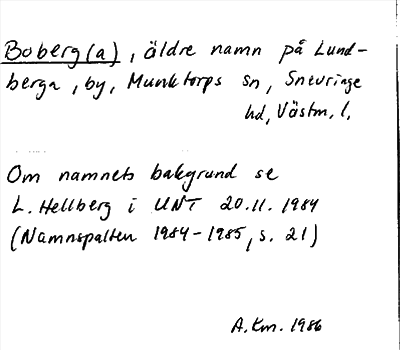 Boberg(a), äldre namn på Lund-
berga, by, Munktorps sn, Snevringe
hd, Västm. l.
Om namnets bakgrund se
L. Hellberg i UNT 20.11.1984
(Namnspalten 1984-1985, s. 21)
A.Km. 1986